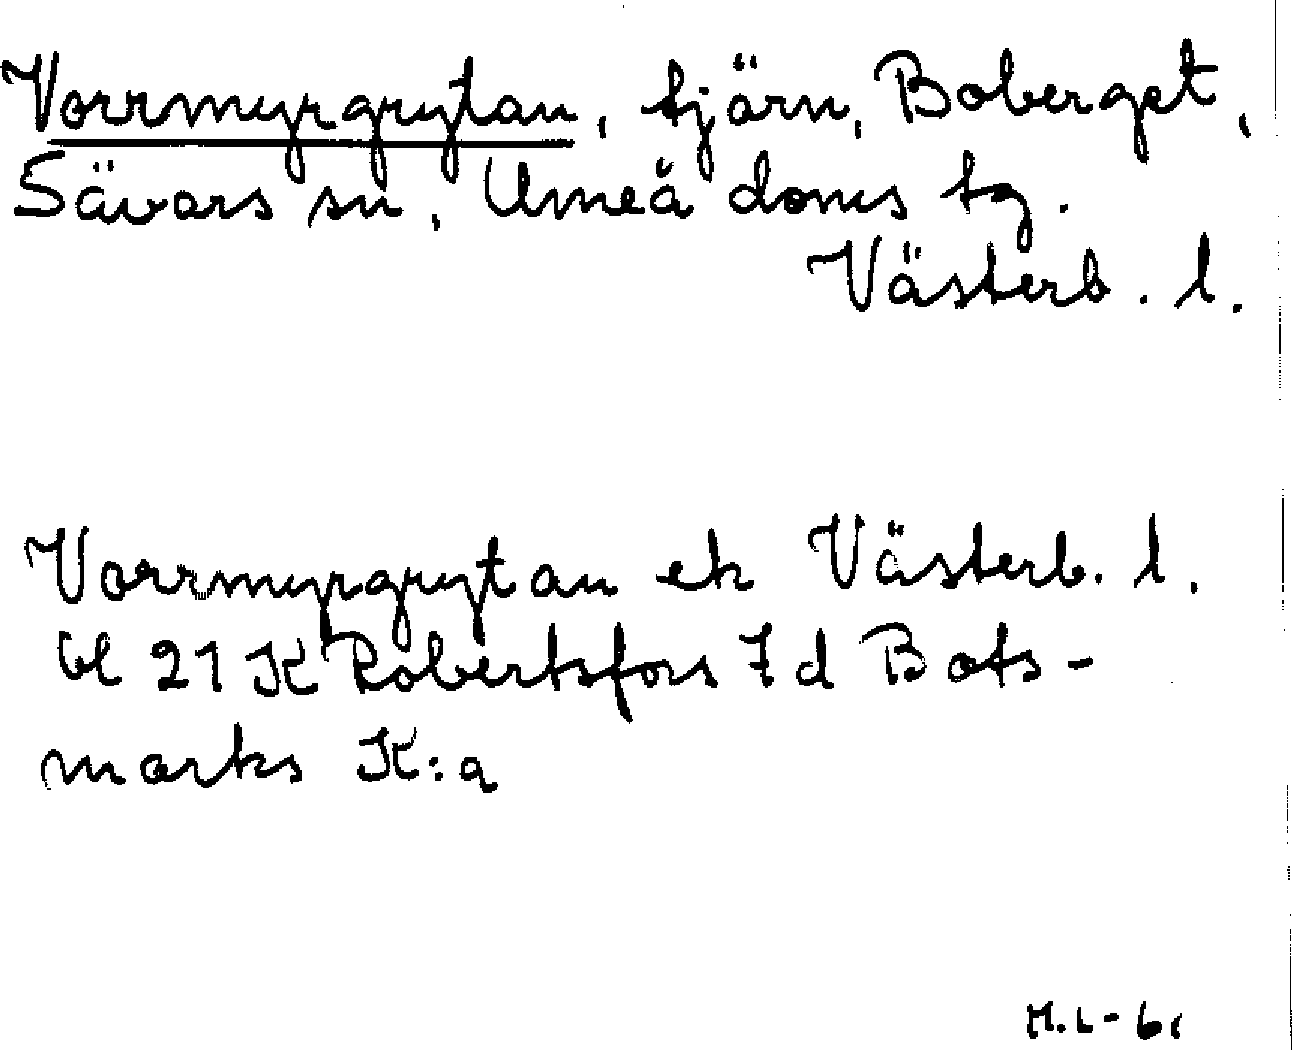 Vorrmyrgrytan, tjärn, Boberget,
Sävars sn, Umeå doms tg.
Västerb. l.
Vorrmyrgrytan ek Västerb. l.
bl 21 K Robertsfors 7d Bots-
marks K:a
M.L-61